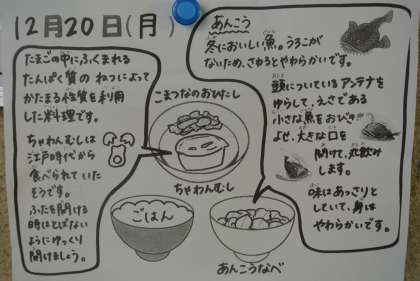 12月20日(月)
たまごの中にふくまれる
たんぱく質のねつによって
かたまる性質を利用
した料理です。
ちゃわんむしは
江戸時代から
食べられていた
そうです。
ふたを開ける
時はとばない
ようにゆっくり
開けましょう。
こまつなのおひたし
ちゃわんむし
ごはん
あんこうなべ
あんこう
冬においしい魚。うろこが
ないため、さわるとやわらかいです。
頭についているアンテナを
ゆらして、えさである
小さな魚をおびき
よせ、大きな口を
開けて、丸飲み
します。
味はあっさりと
していて、身は
やわらかいです。